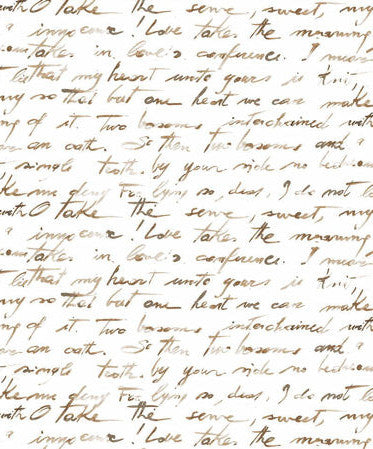 with O take the serve, sweet, my
innocence! Love takes the meaning
takes in love's conference. I mean
that my heart unto yours is knit,
so that but one heart we can make
of it. Two bosoms interchained with
an oath. So then two bosoms and
single troth. by your side no bed-room
me deny For lying so, dear, I do not
with O take the serve, sweet, my
innocence! Love takes the meaning
takes in love's conference. I mean
that my heart unto yours is knit,
so that but one heart we can make
of it. Two bosoms interchained with
an oath. So then two bosoms and
single troth. by your side no bed-room
me deny For lying so, dear, I do not
with O take the serve, sweet, my
innocence! Love takes the meaning